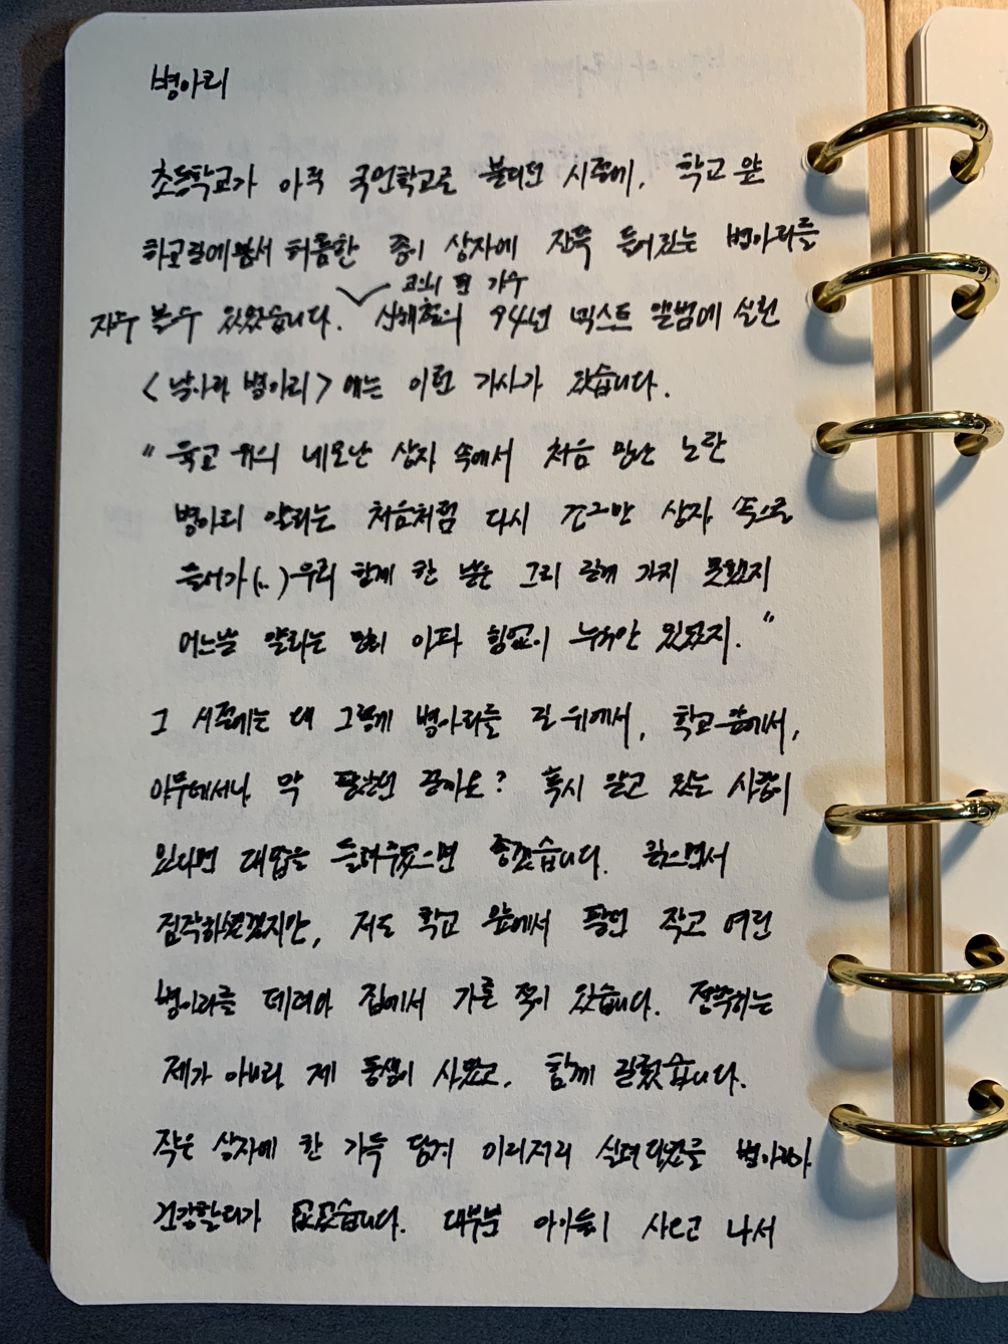 병아리
초등학교가 아직 국민학교로 불리던 시절에, 학교 앞
하교길에 서 허름한 종이 상자에 잔뜩 들어있는 병아리를
자주 볼 수 있었습니다. 고인이 된 가수 신해철의 94년 넥스트 앨범에 실린
<날아라 병아리>에는 이런 가사가 있습니다.
" 육교 위의 네모난 상자 속에서 처음 만난 노란
병아리 얄리는 처음처럼 다시 조그만 상자 속으로
들어가 (..) 우리 함께 한 날은 그리 길게 가지 못했지
어느날 얄리는 많이 아파 힘없이 누워만 있었지. "
그 시절에는 왜 그렇게 병아리를 길 위에서, 학교 앞에서,
아무데서나 막 팔았던 걸까요? 혹시 알고 있는 사람이
있다면 대답을 들려주었으면 좋겠습니다. 읽으면서
짐작하셨겠지만, 저도 학교 앞에서 팔던 작고 여린
병아리를 데려와 집에서 기른 적이 있습니다. 정확히는
제가 아니라 제 동생이 사왔고, 함께 길렀습니다.
작은 상자에 한 가득 담겨 이리저리 실려다녔을 병아리가
건강할리가 없었습니다. 대부분 아이들이 사오고 나서